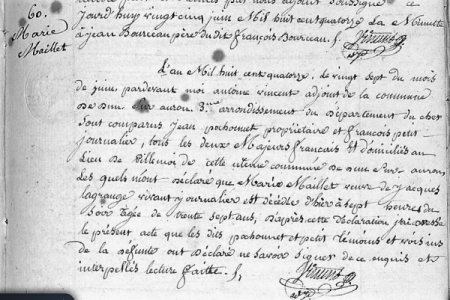 60.
Marie
Maillet
Jourd'huy vingt cinq juin Mil huit cent quatorze La Minutte
a jean Bourreau père du dit françois Bourreau ./.
Vincent
adj.
L'an Mil huit cent quatorze, le vingt sept du mois
de juin pardevant moi antoine vincent adjoint de la commune
de Dun sur auron. 3.me arrondissement du Département du cher
sont comparus Jean pachonnet, propriétaire et françois petit
journalier, tous les deux Majeurs français et domiciliés au
Lieu de de cette commune de Dun sur auron.
Les quels m'ont déclaré que Marie Maillet veuve de jacques
lagrange vivant journalier est décédée d'hier à sept heures du
soir agée de trente sept ans, d'après cette déclaration j'ai dressé
le présent acte que les dits pachonnet et petit témoins et voisins
de la deffunte ont déclaré ne savoir signer de ce enquis et
interpellés lecture faitte ./.
Vincent
adj.